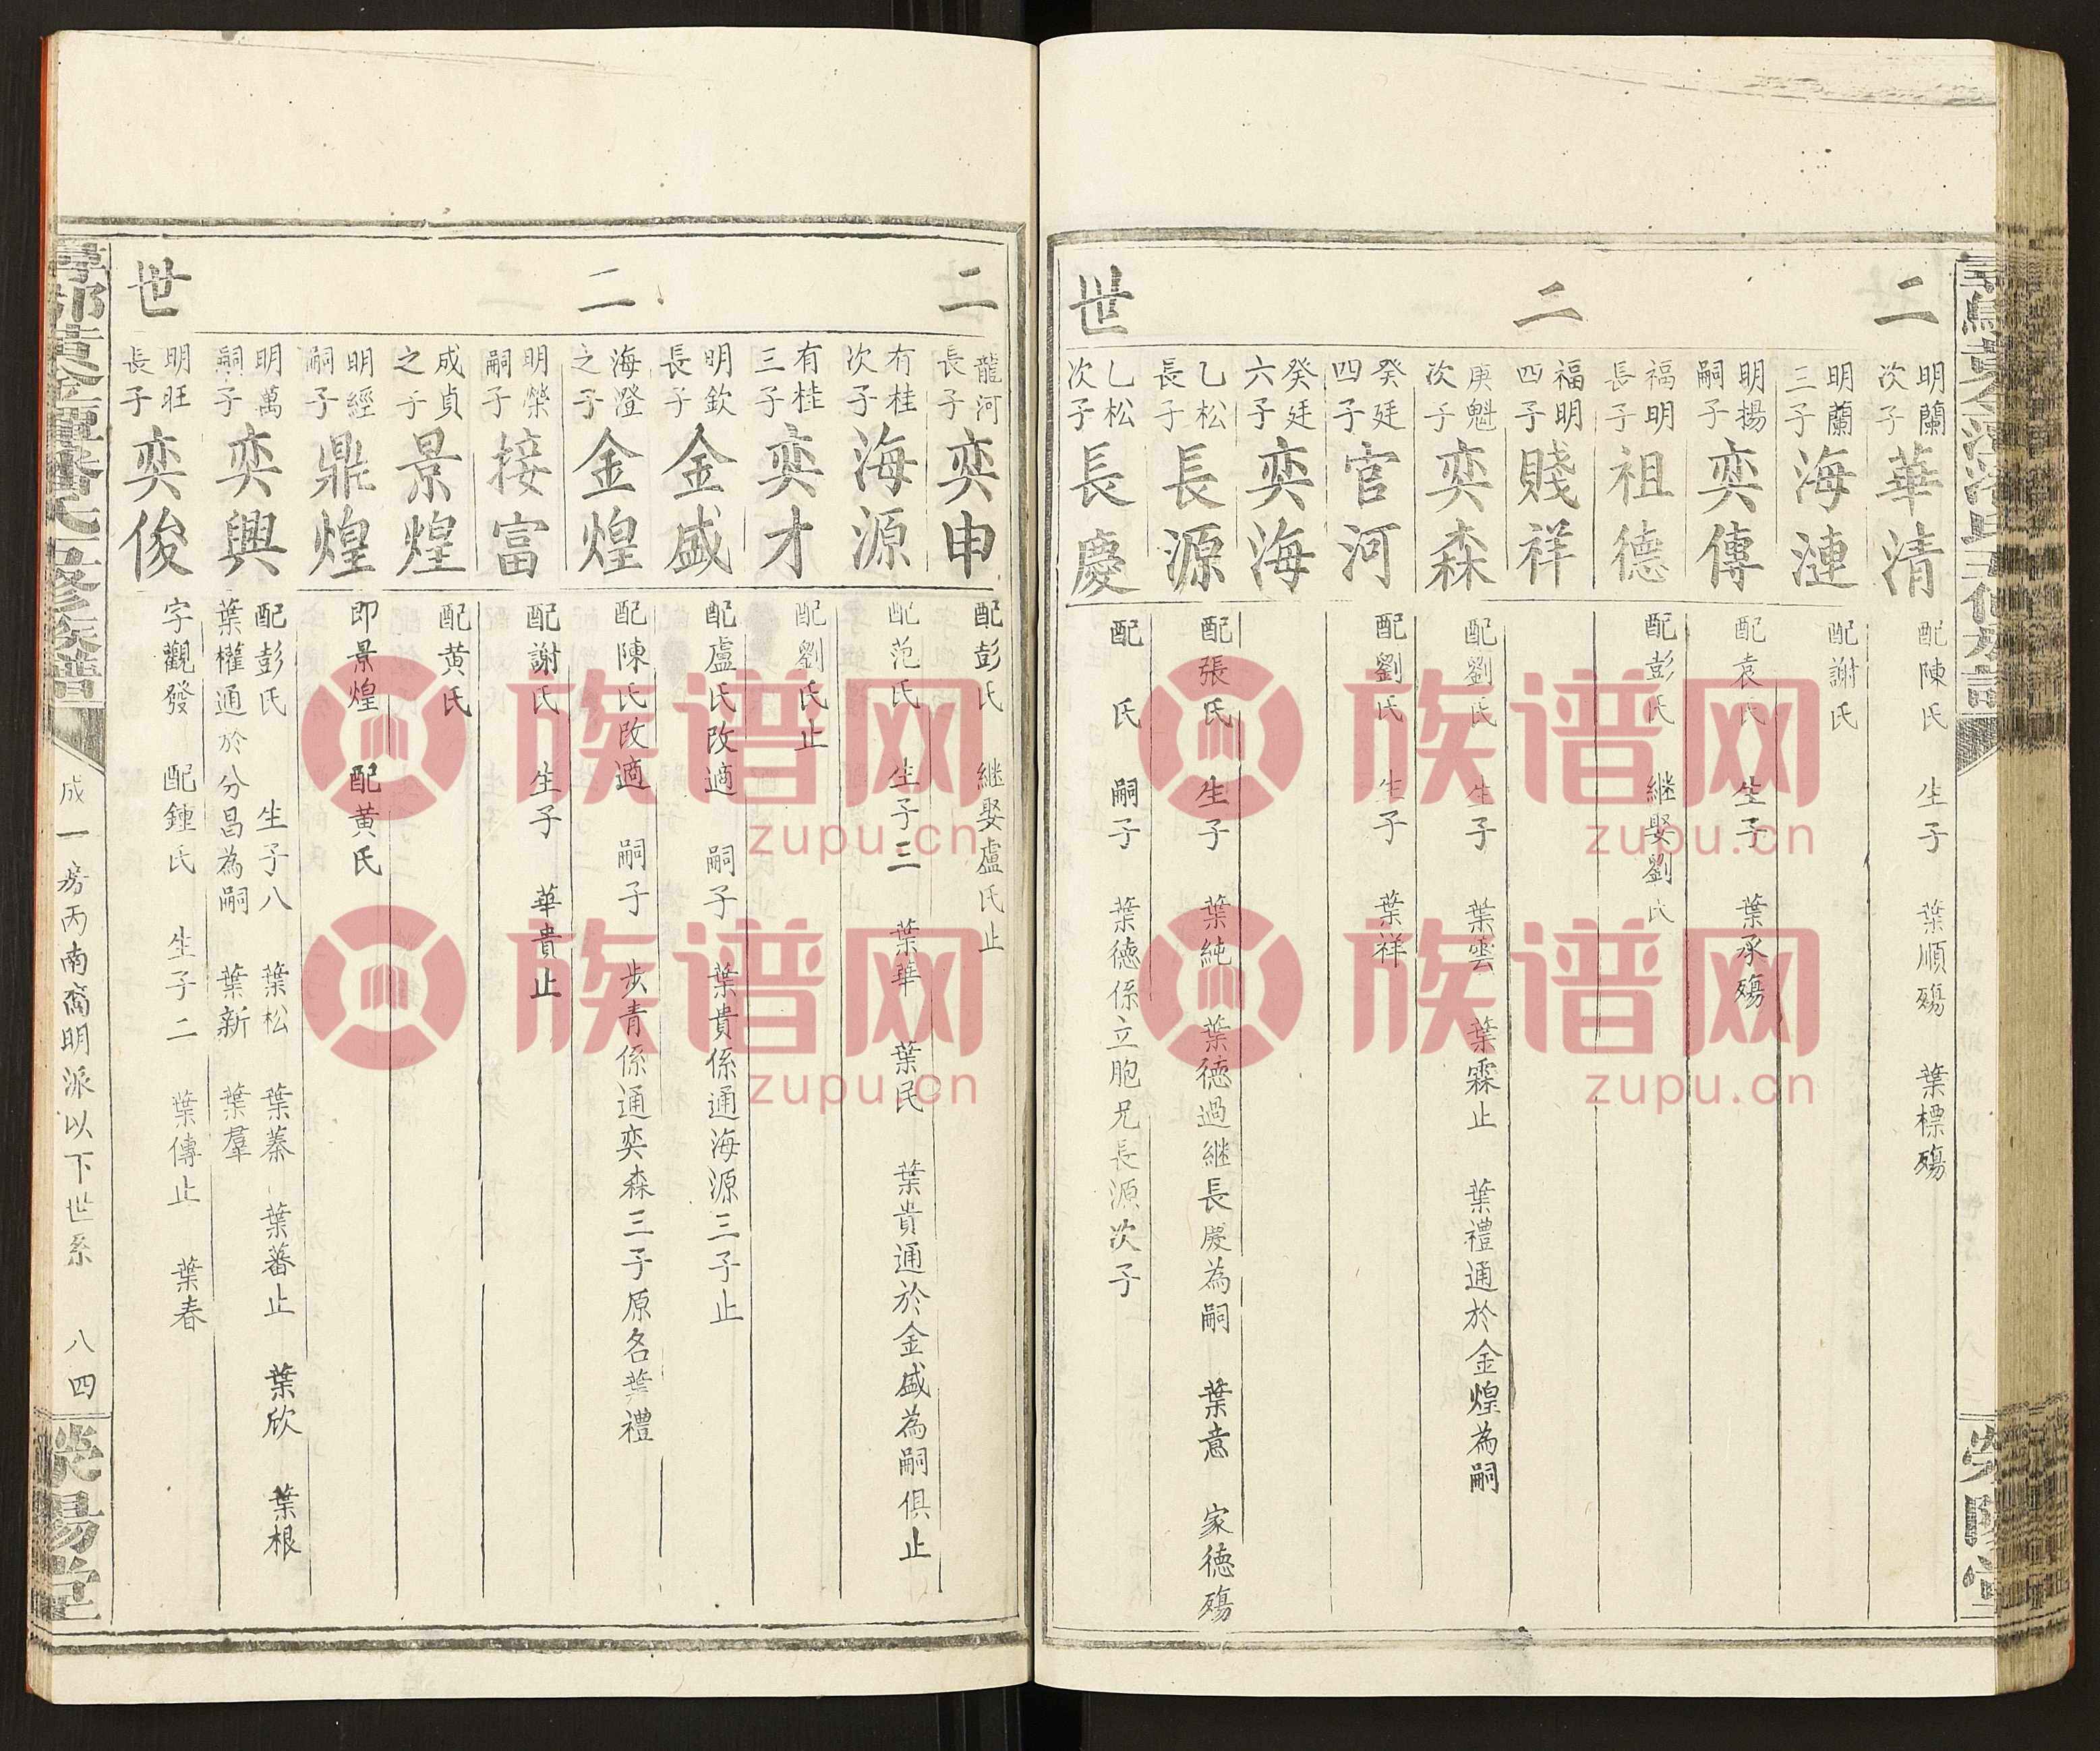 二二世
明蘭次子
華清
配陳氏 生子 葉順殤 葉標殤
明蘭三子
海漣
配謝氏
明揚嗣子
奕傳
配袁氏 生子 葉承殤
福明長子
祖德
配彭氏 継娶劉氏
福明四子
賤祥
庚魁次子
奕森
配劉氏 生子 葉雲 葉霖止 葉禮通於金煌為嗣
癸廷四子
官河
配劉氏 生子 葉祥
癸廷六子
奕海
乙松長子
長源
配張氏 生子 葉純 葉德過継長慶為嗣 葉意 家德殤
乙松次子
長慶
配 氏 嗣子 葉德係立胞兄長源次子
二二世
龍河長子
奕申
配彭氏 継娶盧氏止
有桂次子
海源
配范氏 生子三 葉華 葉民 葉貴通於金盛為嗣俱止
有桂三子
奕才
配劉氏止
明欽長子
金盛
配盧氏改適 嗣子 葉貴係通海源三子止
海澄之子
金煌
配陳氏改適 嗣子 步青係通奕森三子原名葉禮
明榮嗣子
接富
配謝氏 生子 華貴止
成貞之子
景煌
配黄氏
明經嗣子
鼎煌
即景煌 配黄氏
明萬嗣子
奕興
配彭氏 生子八 葉松 葉蓁 葉蕃止 葉欣 葉根
葉權通於分昌為嗣 葉新 葉羣
明旺長子
奕俊
字觀發 配鍾氏 生子二 葉傳止 葉春
尋邬黄金潭潘氏五修族譜
成一房丙南裔明派以下世系 八四
滎陽堂
族谱网
zupu.cn
族谱网
zupu.cn
族谱网
zupu.cn
族谱网
zupu.cn